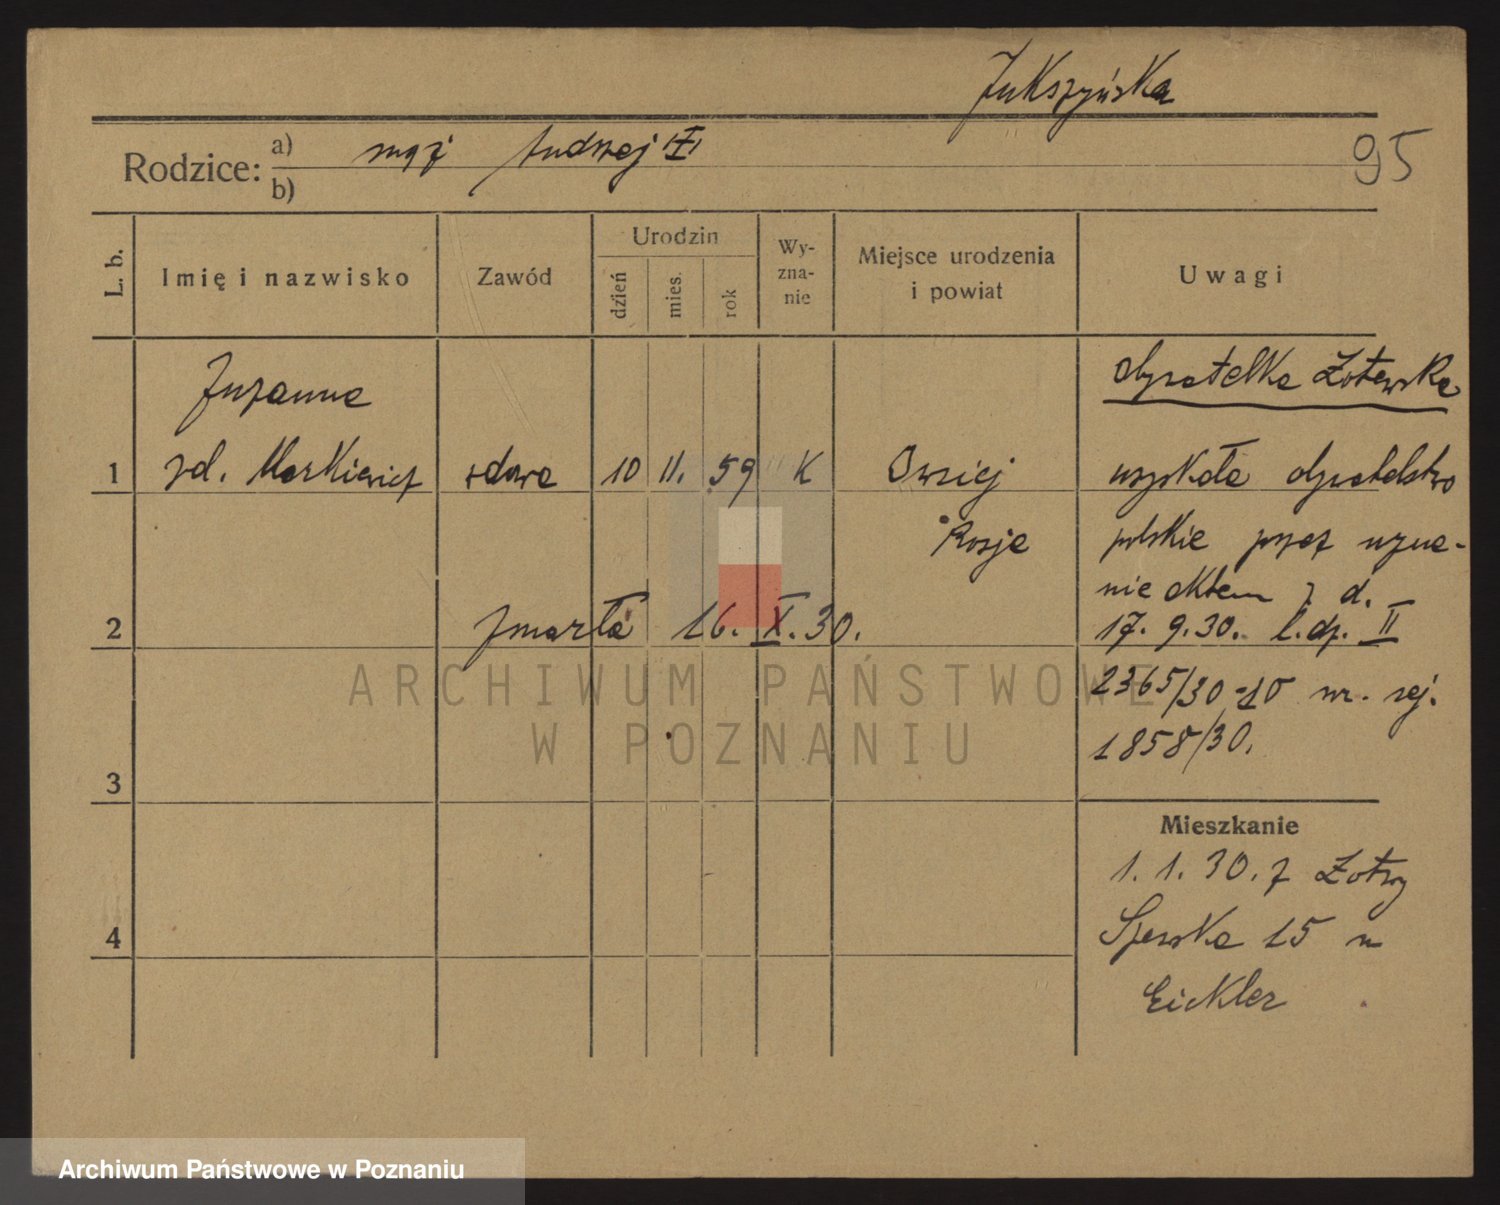 Jukszyńska
95
Rodzice: a) mąż Andrzej (†)
b)
L. b.
Imię i nazwisko
Zawód
Urodzin
dzień
mies.
rok
Wy-
zna-
nie
Miejsce urodzenia
i powiat
Uwagi
obywatelka Łotewska
Zuzanna
1 zd. Markiewicz wdowa 10 11. 59 K Owsiej uzyskała obywatelstwo
Rosja polskie przez uzna-
nie aktem z d.
2 zmarła 16. X. 30. 17. 9. 30. l. dz. II
2365/30-10 nr. rej.
1858/30.
3
Mieszkanie
1. 1. 30. z Łotwy
4 15 u
Eickler
ARCHIWUM PAŃSTWOWE
W POZNANIU
Archiwum Państwowe w Poznaniu